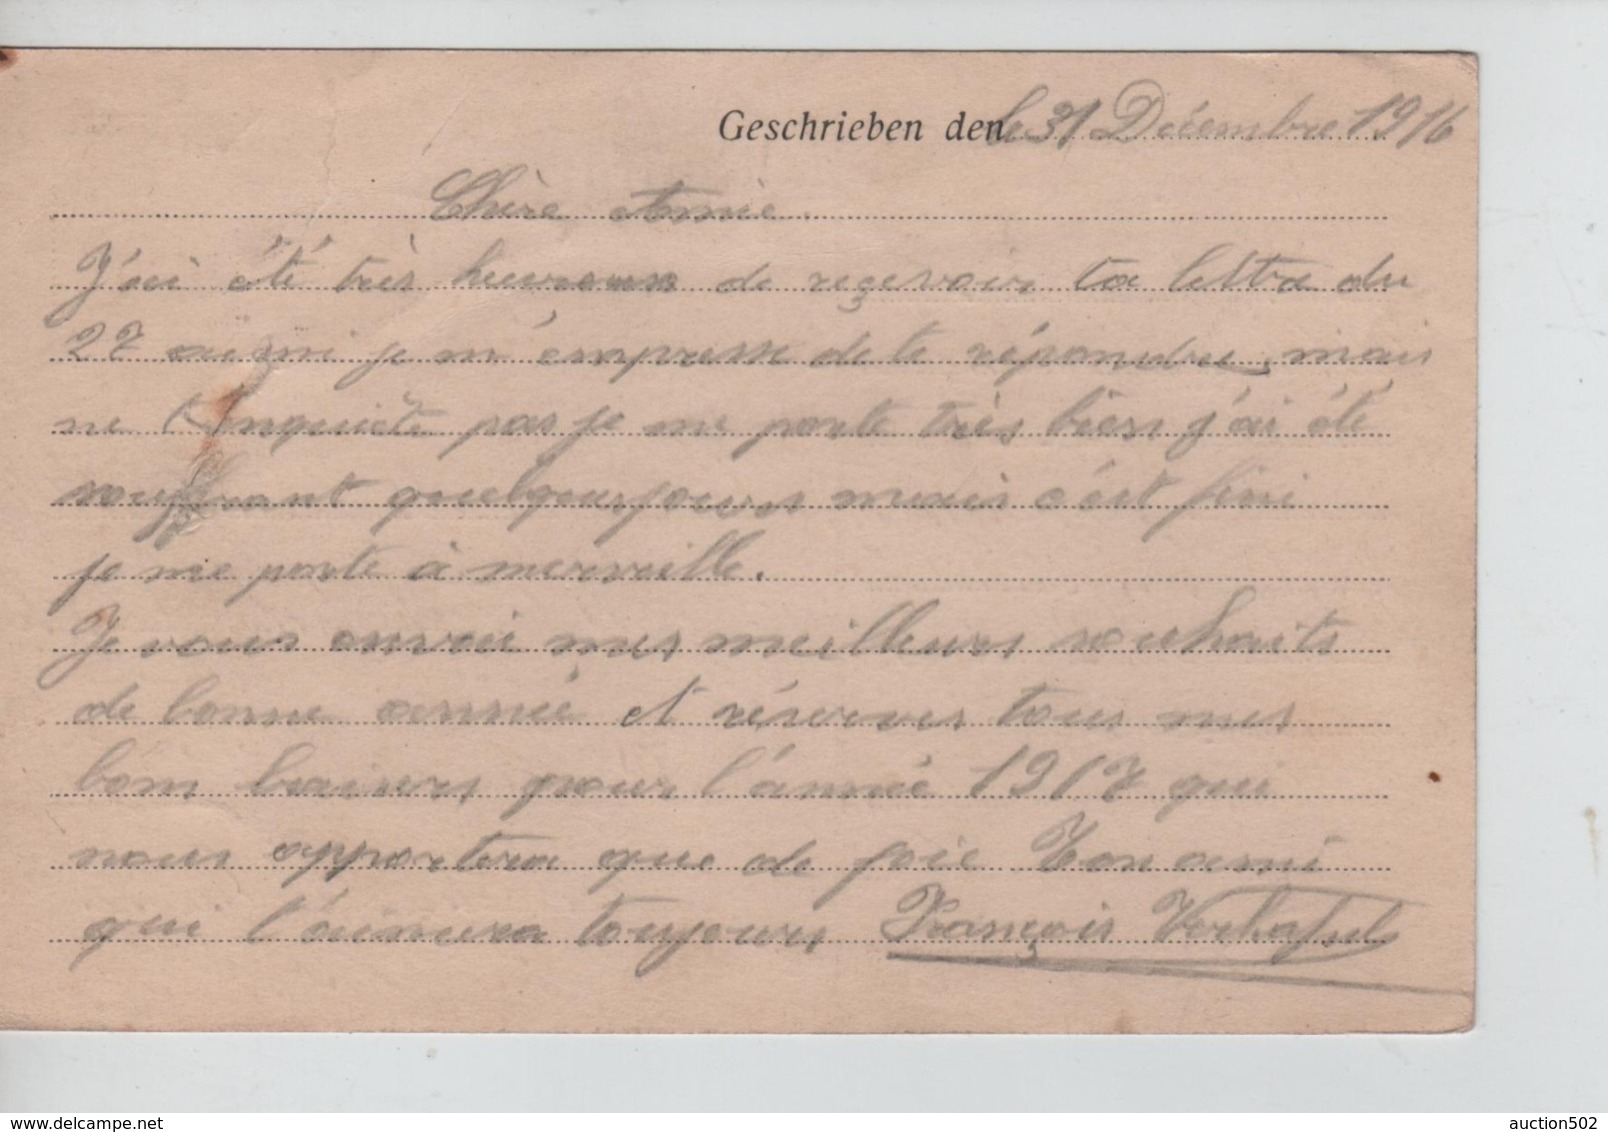 Geschrieben den le 31 Décembre 1916
Chère Amie.
J'ai été très heureux de reçevoir ta lettre du
27 aussi je m'émpresse de te répondre, mais
ne t'inquiète pas je me porte très bien j'ai été
souffrant quelques jours mais c'est fini
je me porte à merveille.
Je vous envoi mes meilleurs souhaits
de bonne année et réserves tous mes
bons baisers pour l'année 1917 qui
nous apportera que de joie Ton ami
qui t'aimera toujours François
delcampe.net
auction502